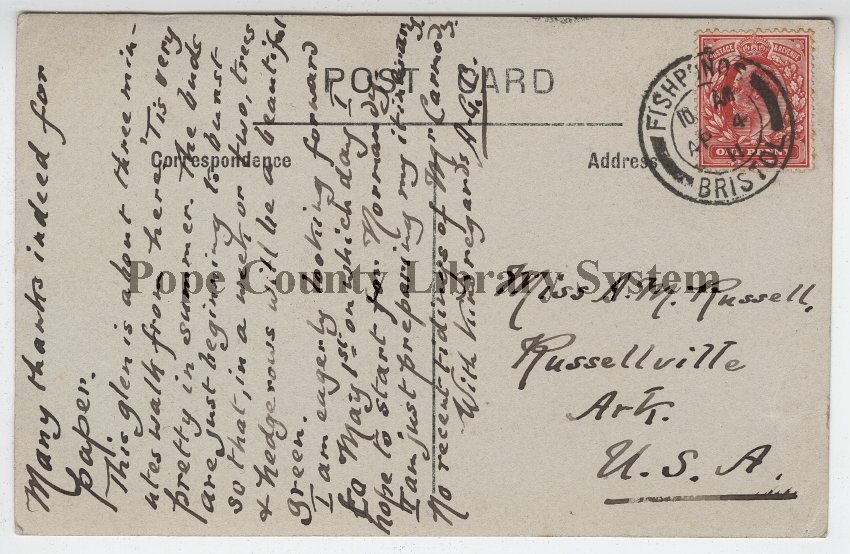 POST CARD
Correspondence
Address
Many thanks indeed for
paper.
This glen is about three min-
utes walk from here. 'Tis very
pretty in summer. The buds
are just beginning to burst
so that, in a week or two, trees
& hedgerows will be a beautiful
green.
I am eagerly looking forward
to May 1st on which day I
hope to start for Normandy.
I am just preparing my itinerary
No recent tidings of Mr Carmody.
With kind regards
Miss A. M. Russell,
Russellville
Ark.
U. S. A.
FISHPONDS
BRISTOL
10 AM
AP 4
11
POSTAGE & REVENUE
ONE PENNY
Pope County Library System